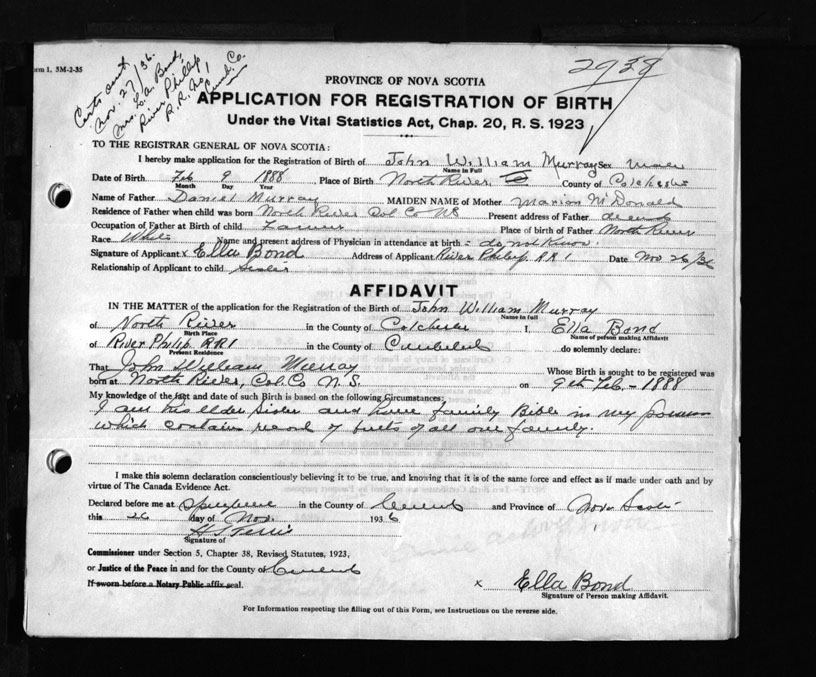 orm 1. 5M-2-35
Certs sent
Nov. 27/36.
Mrs. E.A. Bond,
River Phillip
R.R. No 1
Cumb. Co.
2938
PROVINCE OF NOVA SCOTIA
APPLICATION FOR REGISTRATION OF BIRTH
Under the Vital Statistics Act, Chap. 20, R. S. 1923
TO THE REGISTRAR GENERAL OF NOVA SCOTIA:
I hereby make application for the Registration of Birth of John William Murray Sex Male
Name in Full
Date of Birth Feb 9 1888 Place of Birth North River, County of Colchester
Month Day Year
Name of Father Daniel Murray MAIDEN NAME of Mother Marion McDonald
Residence of Father when child was born North River Col Co NS Present address of Father
Occupation of Father at Birth of child Farmer Place of Birth of Father North River
Race White Name and present address of Physician in attendance at birth - do not Know.
Signature of Applicant x Ella Bond Address of Applicant River Philip. RR 1 Date Nov 26/36
Relationship of Applicant to child Sister
AFFIDAVIT
IN THE MATTER of the application for the Registration of the Birth of John William Murray
Name in full
of North River in the County of Colchester I, Ella Bond
Birth Place Name of person making Affidavit
of River Philip RR1 in the County of Cumberland do solemnly declare:
Present Residence
That John William Murray Whose Birth is sought to be registered was
born at North River, Col. Co N. S. on 9th Feb - 1888
My knowledge of the fact and date of such Birth is based on the following Circumstances:
I am his elder Sister and have family Bible in my possession
which contains record of births of all our family.
I make this solemn declaration conscientiously believing it to be true, and knowing that it is of the same force and effect as if made under oath and by
virtue of The Canada Evidence Act.
Declared before me at in the County of Cumberland and Province of Nova Scotia
this 26 day of Nov. 1936
Signature of
Commissioner under Section 5, Chapter 38, Revised Statutes, 1923,
or Justice of the Peace in and for the County of Cumberland
If sworn before a Notary Public affix seal.
x Ella Bond
Signature of Person making Affidavit.
For Information respecting the filling out of this Form, see Instructions on the reverse side.